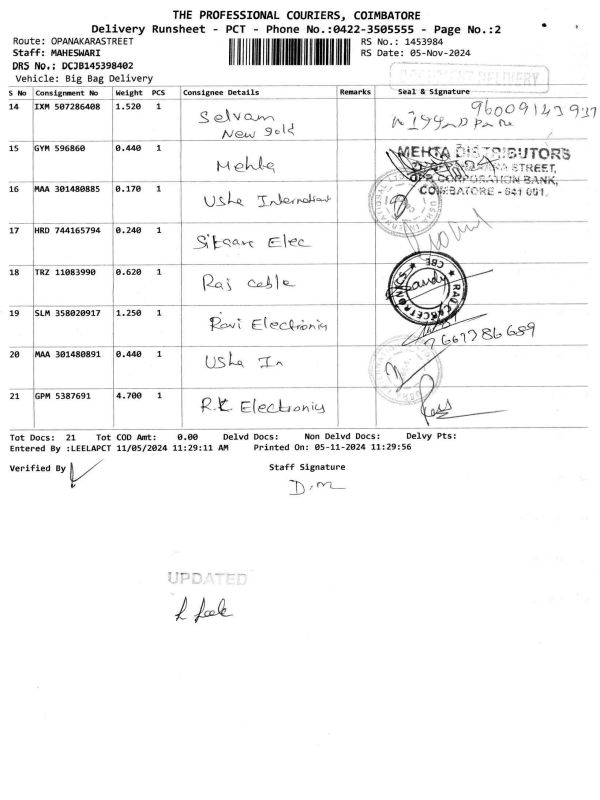 THE PROFESSIONAL COURIERS, COIMBATORE
Delivery Runsheet - PCT - Phone No.:0422-3505555 - Page No.:2
Route: OPANAKARASTREET RS No.: 1453984
Staff: MAHESWARI RS Date: 05-Nov-2024
DRS No.: DCJB145398402
Vehicle: Big Bag Delivery
DOCUMENT DELIVERY
S No Consignment No Weight PCS Consignee Details Remarks Seal & Signature
14 IXM 507286408 1.520 1 Selvam 96009143937
New gold
15 GYM 596860 0.440 1 Mehta MEHTA DISTRIBUTORS
STREET,
CORPORATION BANK,
COIMBATORE - 641 001.
16 MAA 301480885 0.170 1 Usha Internation
17 HRD 744165794 0.240 1 Elec
18 TRZ 11083990 0.620 1 Raj cable CBE
19 SLM 358020917 1.250 1 Ravi Electronics
20 MAA 301480891 0.440 1 Usha In
21 GPM 5387691 4.700 1 R.K Electronics
Tot Docs: 21 Tot COD Amt: 0.00 Delvd Docs: Non Delvd Docs: Delvy Pts:
Entered By :LEELAPCT 11/05/2024 11:29:11 AM Printed On: 05-11-2024 11:29:56
Verified By Staff Signature
UPDATED